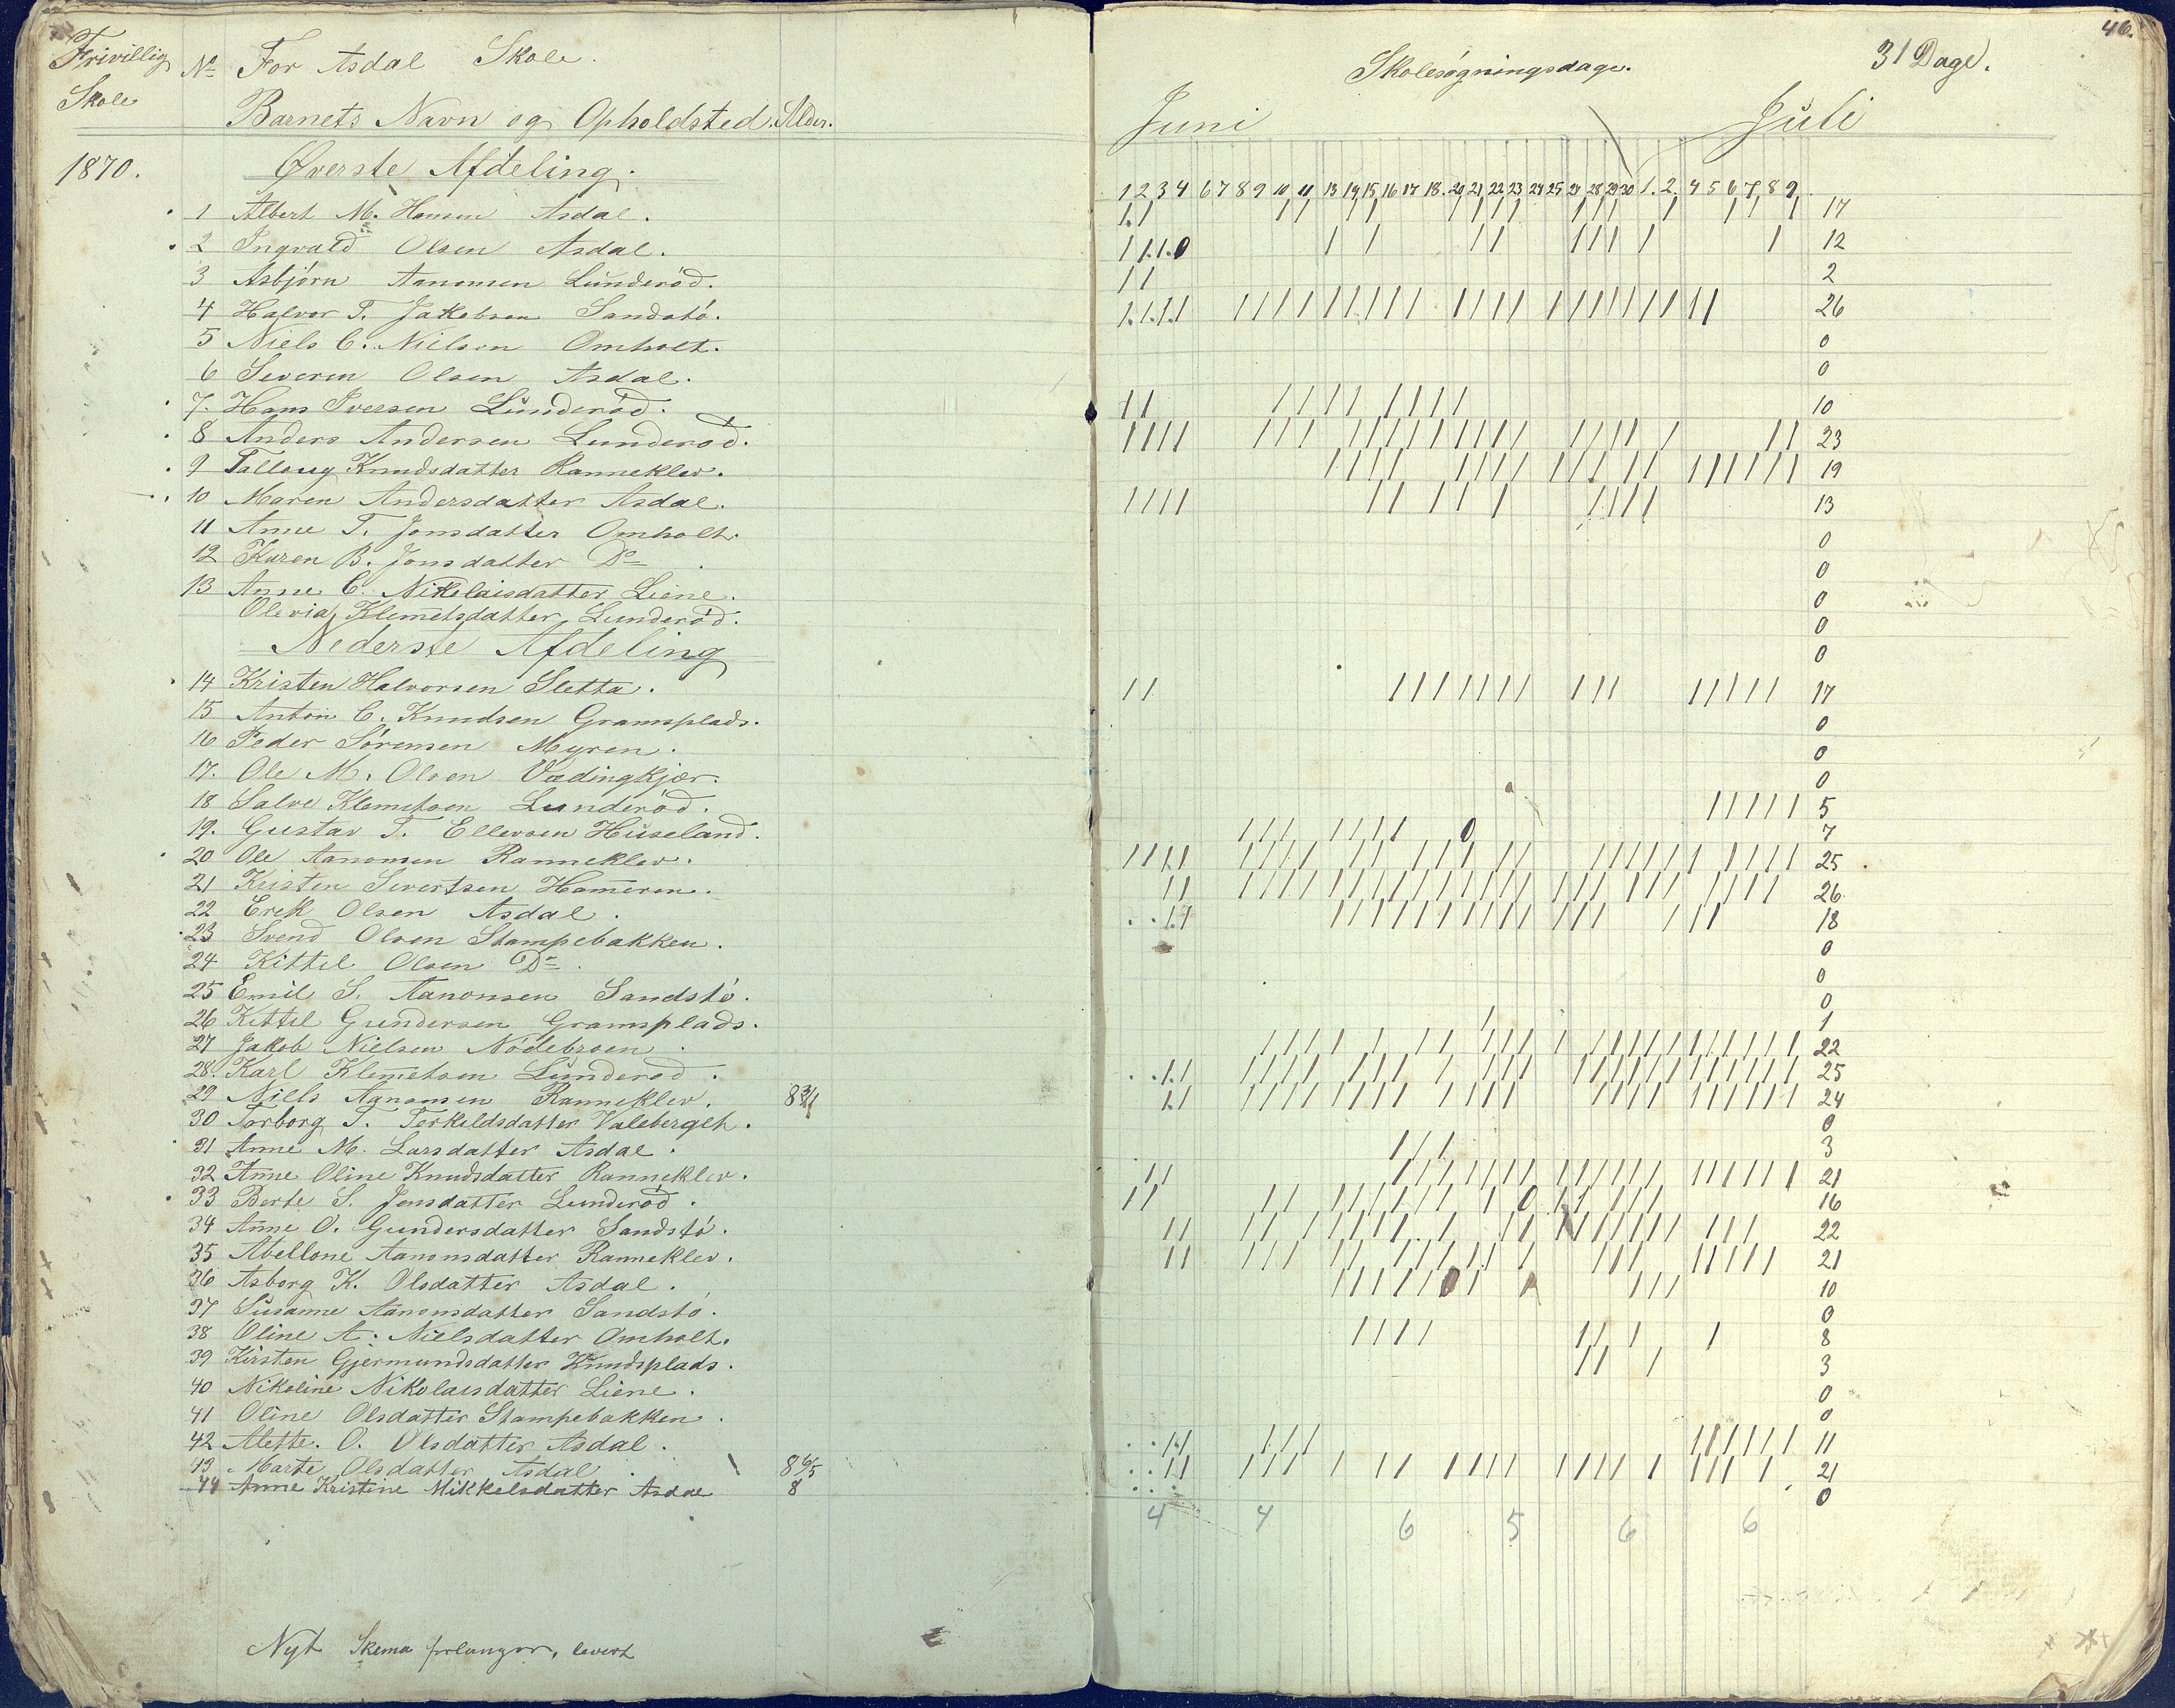 Frivillig Skole
1870.
No For Asdal Skole.
Barnets Navn og Opholdsted. Alder.
Øverste Afdeling.
1 Albert M. Hansen Asdal.
2 Ingvald Olsen Asdal.
3 Asbjørn Aanonsen Lunderöd.
4 Halvor T. Jakobsen Sandstö.
5 Niels C. Nielsen Omholt.
6 Severin Olsen Asdal.
7. Hans Iversen Lunderöd.
8 Anders Andersen Lunderöd.
9 Tallaug Knudsdatter Ranneklev.
10 Maren Andersdatter Asdal.
11 Anne T. Jonsdatter Omholt.
12 Karen B. Jonsdatter Do
13 Anne C. Nikolaisdatter Liene.
Olevia Klemetsdatter Lunderöd.
Nederste Afdeling
14 Kristen Halvorsen Sletta.
15 Anton C. Knudsen Gramsplads.
16 Peder Sörensen Myren.
17. Ole M. Olsen Vædingkjær.
18 Salve Klemetsen Lunderöd.
19. Gustav T. Ellevsen Huseland.
20 Ole Aanonsen Ranneklev.
21 Kristen Sivertsen Hameren.
22 Erek Olsen Asdal.
23 Svend Olsen Stampebakken.
24 Kittel Olsen Do
25 Emil S. Aanonsen Sandstö.
26 Kittel Gundersen Gramsplads.
27 Jakob Nielsen Nödebroen
28. Karl Klemetsen Lunderöd.
29 Niels Aanonsen Ranneklev.
30 Torborg T. Terkeldsdatter Valebergeh.
31 Anne M. Larsdatter Asdal.
32 Anne Oline Knudsdatter Ranneklev.
33 Berte S. Jensdatter Lunderöd.
34 Anne O. Gundersdatter Sandstö.
35 Abellone Aanonsdatter Ranneklev.
36 Asborg K. Olsdatter Asdal.
37 Susanne Aanonsdatter Sandstö.
38 Oline A. Nielsdatter Omholt.
39 Kirsten Gjermundsdatter Knudsplads.
40 Nikoline Nikolaisdatter Liene.
41 Oline Olsdatter Stampebakken.
42 Alette. O. Olsdatter Asdal.
43 Marte Olsdatter Asdal. 8 6/5
44 Anne Kristine Mikkelsdatter Asdal 8
Nyt Skema forlanger, levert
46.
Skolesøgningsdage. 31 Dage.
Juni Juli
1 2 3 4 6 7 8 9 10 11 13 14 15 16 17 18. 20 21 22 23 24 25 27 28 29 30 1. 2. 4 5 6 7 8 9.
17
12
2
26
0
0
10
23
19
13
0
0
0
0
0
17
0
0
0
5
7
25
26
18
0
0
0
1
22
25
24
0
3
21
16
22
21
10
0
8
3
0
0
11
21
0
4 4 6 5 6 6